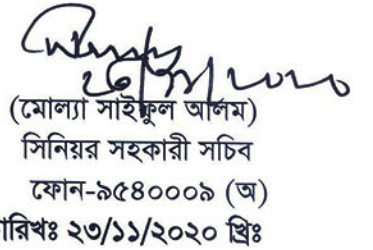 (মোল্যা সাইফুল আলম)
সিনিয়র সহকারী সচিব
ফোন-৯৫৪০০০৯ (অ)
রিখঃ ২৩/১১/২০২০ খ্রিঃ